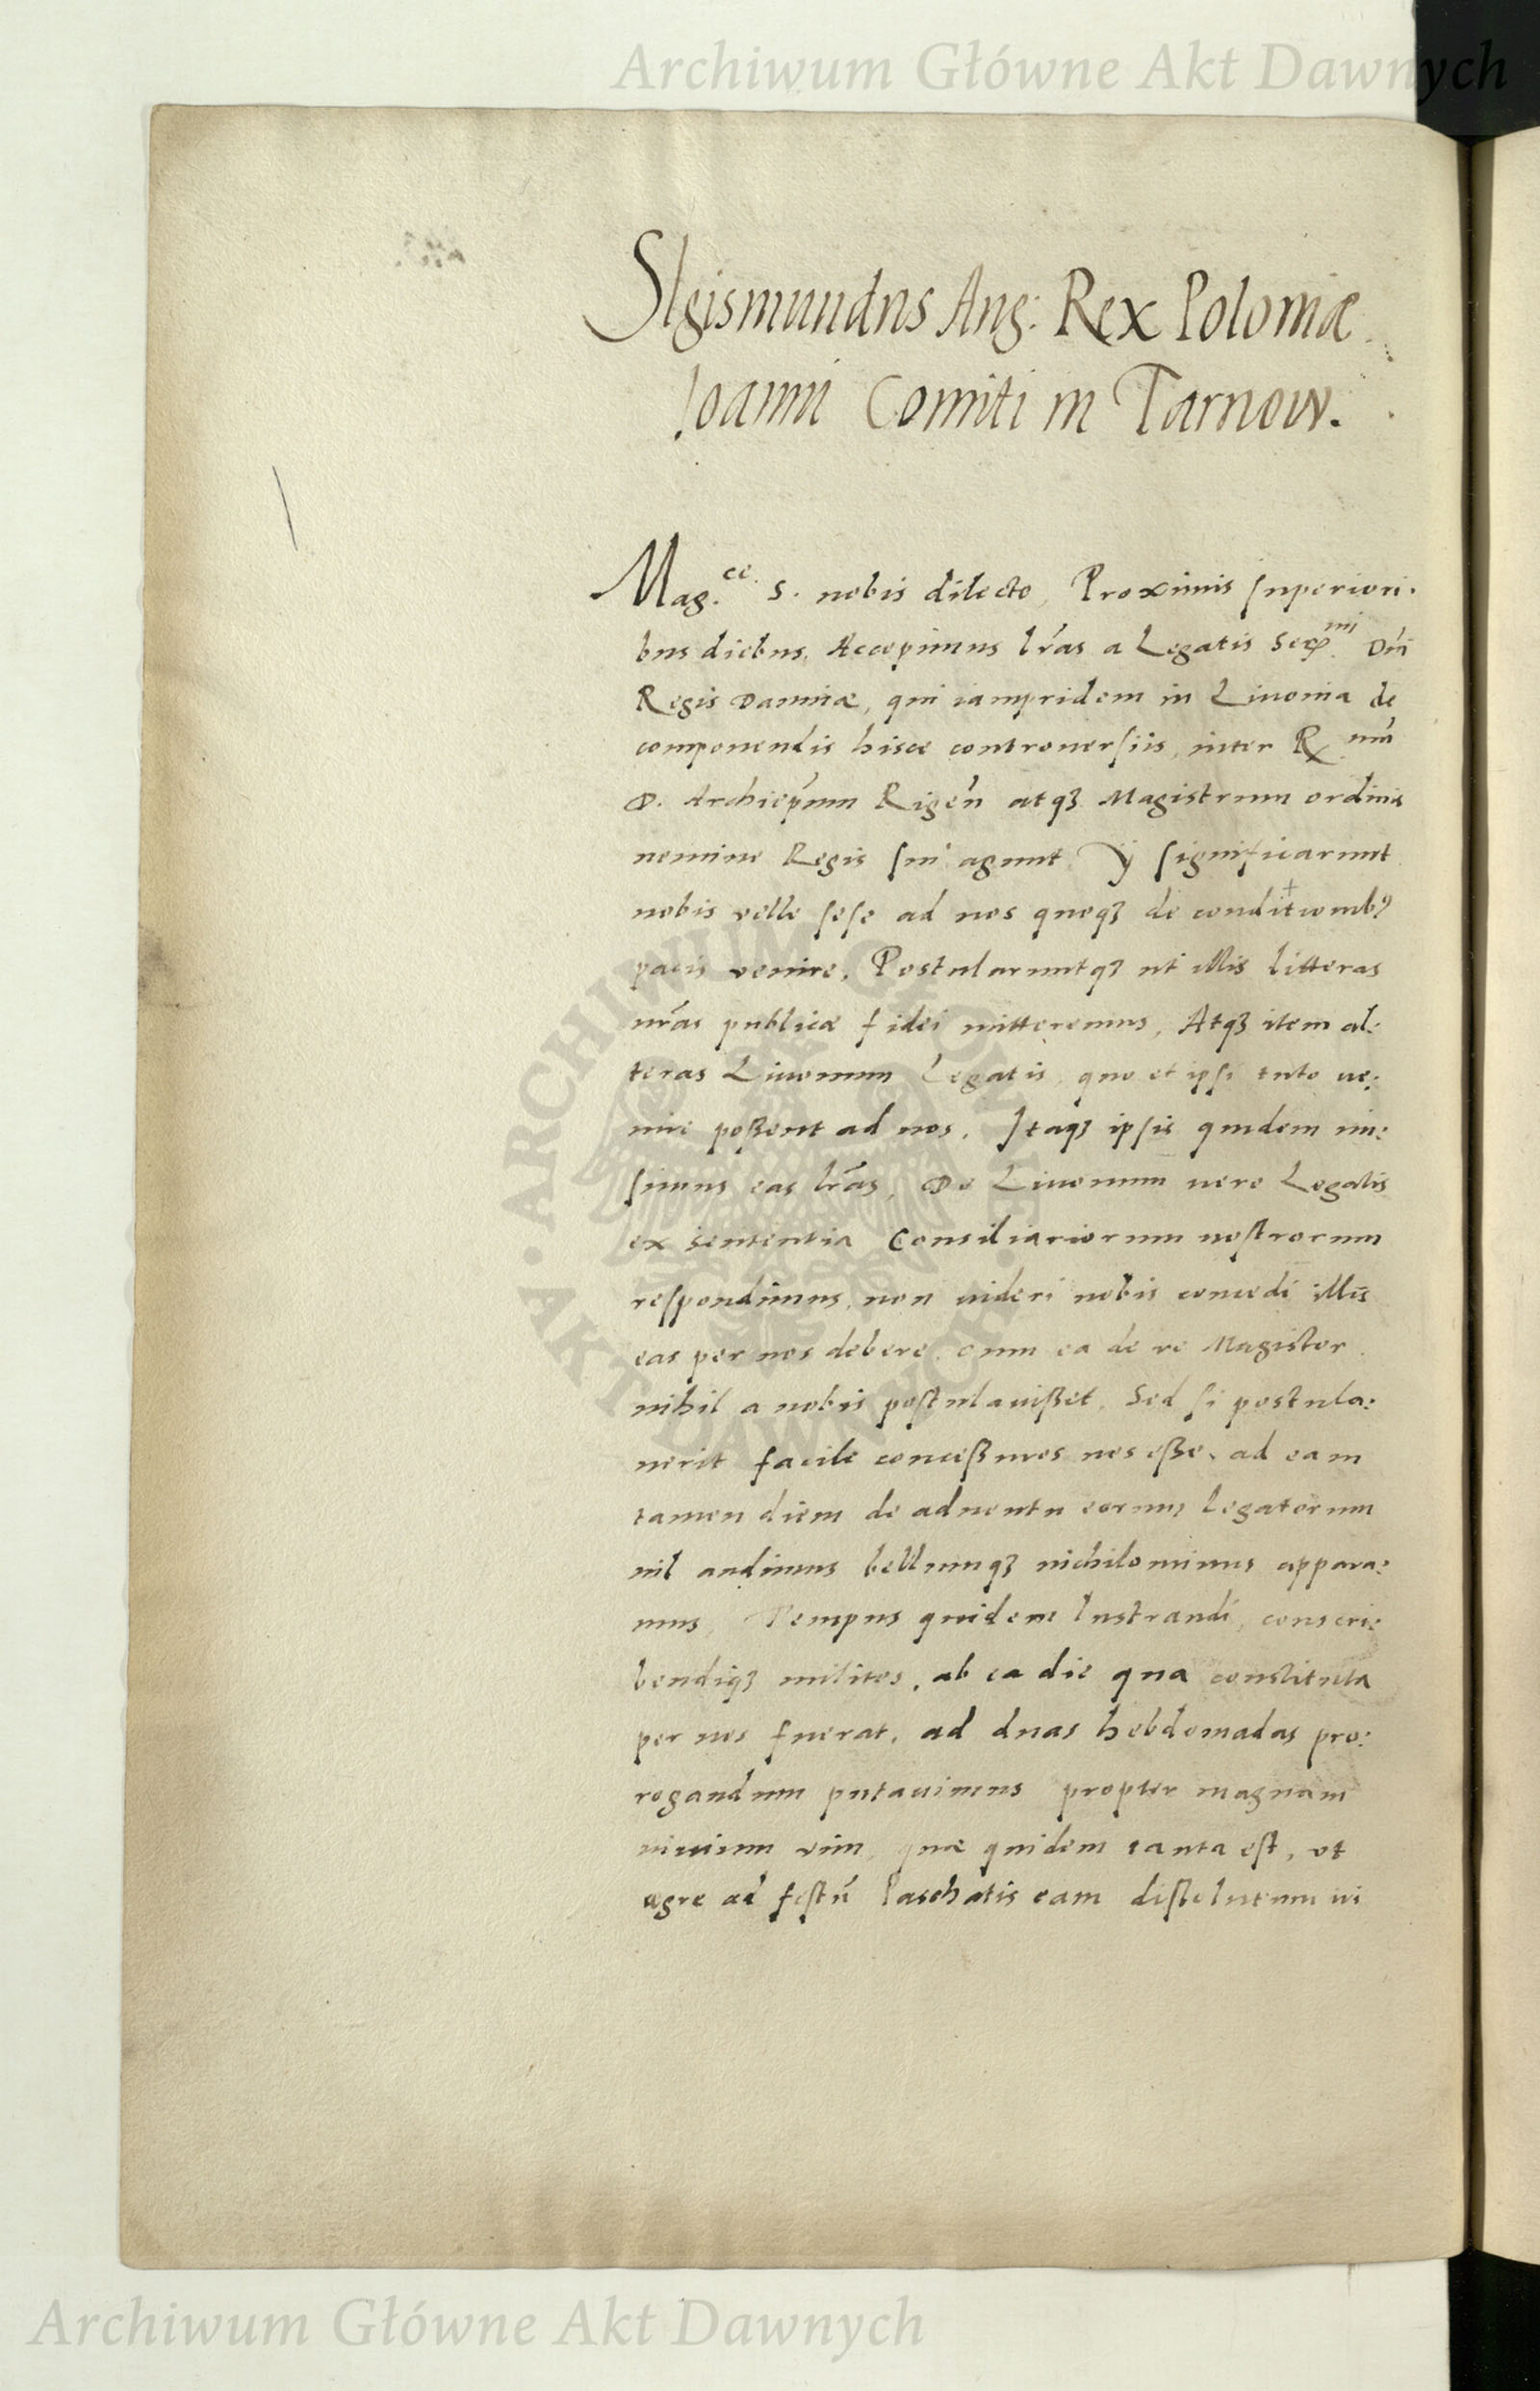 Archiwum Główne Akt Dawnych
SIgismundus Aug: Rex Poloniæ
Ioanni Comiti in Tarnow.
Mag.ce S. nobis dilecte, Proximis superiori:
bus diebus, Accepimus lr̃as a Legatis Serᵐⁱ Dn̄i
Regis Daniæ, qui iampridem in Liuonia de
componendis hisce controuersiis, inter R.mū
D. Archiep̃um Rigeñ atqꝫ Magistrum ordinis
nomine Regis sui agunt. Ij significarunt
nobis velle sese ad nos quoqꝫ de conditionibꝰ
pacis venire, Postularuntqꝫ ut illis litteras
nr̃as publicæ fidei mitteremus, Atqꝫ item al:
teras Liuonum Legatis, quo et ipsi tuto ue:
nire poßent ad nos. Itaqꝫ ipsis quidem mi:
simus eas lr̃as, De Liuonum uero Legatis
ex sententia Consiliariorum nostrorum
respondimus, non uideri nobis concedi illis
eas per nos debere, cum ea de re Magister
nihil a nobis postulauißet, Sed si postula:
uerit facile conceßuros nos eße, ad eam
tamen diem de aduentu eorum legatorum
nil audimus bellumqꝫ nichilominus appara:
mus, Tempus quidem lustrandi, conscri:
bendiqꝫ milites, ab ea die qua constituta
per nos fuerat, ad duas hebdomadas pro:
rogandum putauimus propter magnam
niuium vim, quæ quidem tanta est, vt
ægre ad festū Paschatis eam dissolutum iri
ARCHIWUM GŁÓWNE · AKT DAWNYCH ·
Archiwum Główne Akt Dawnych